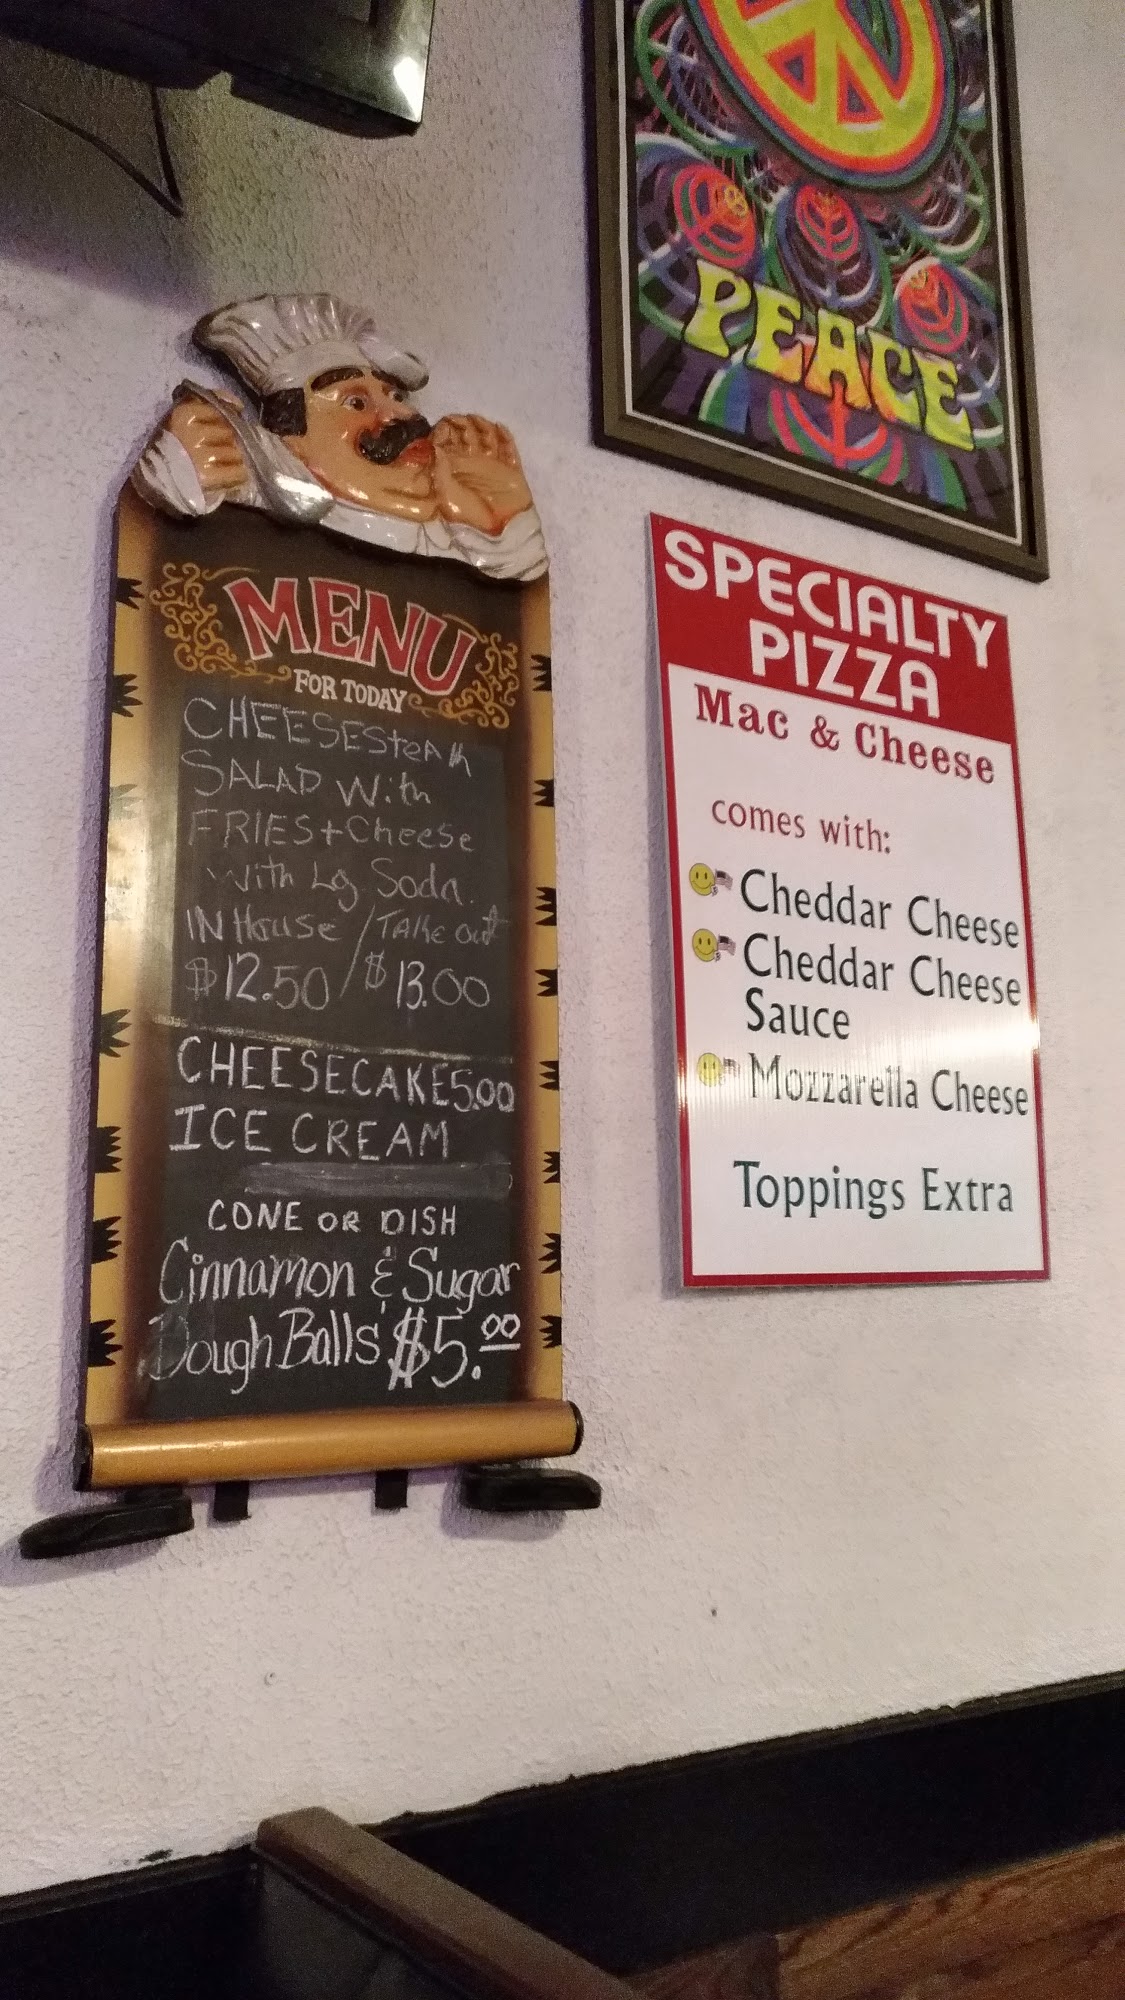 PEACE
MENU
FOR TODAY
CHEESESteAk
SALAD With
FRIES+Cheese
With Lg Soda.
IN House / TAke out
$12.50 / $13.00
CHEESECAKE 5.00
ICE CREAM
CONE OR DISH
Cinnamon & Sugar
Dough Balls $5.00
SPECIALTY
PIZZA
Mac & Cheese
comes with:
Cheddar Cheese
Cheddar Cheese
Sauce
Mozzarella Cheese
Toppings Extra